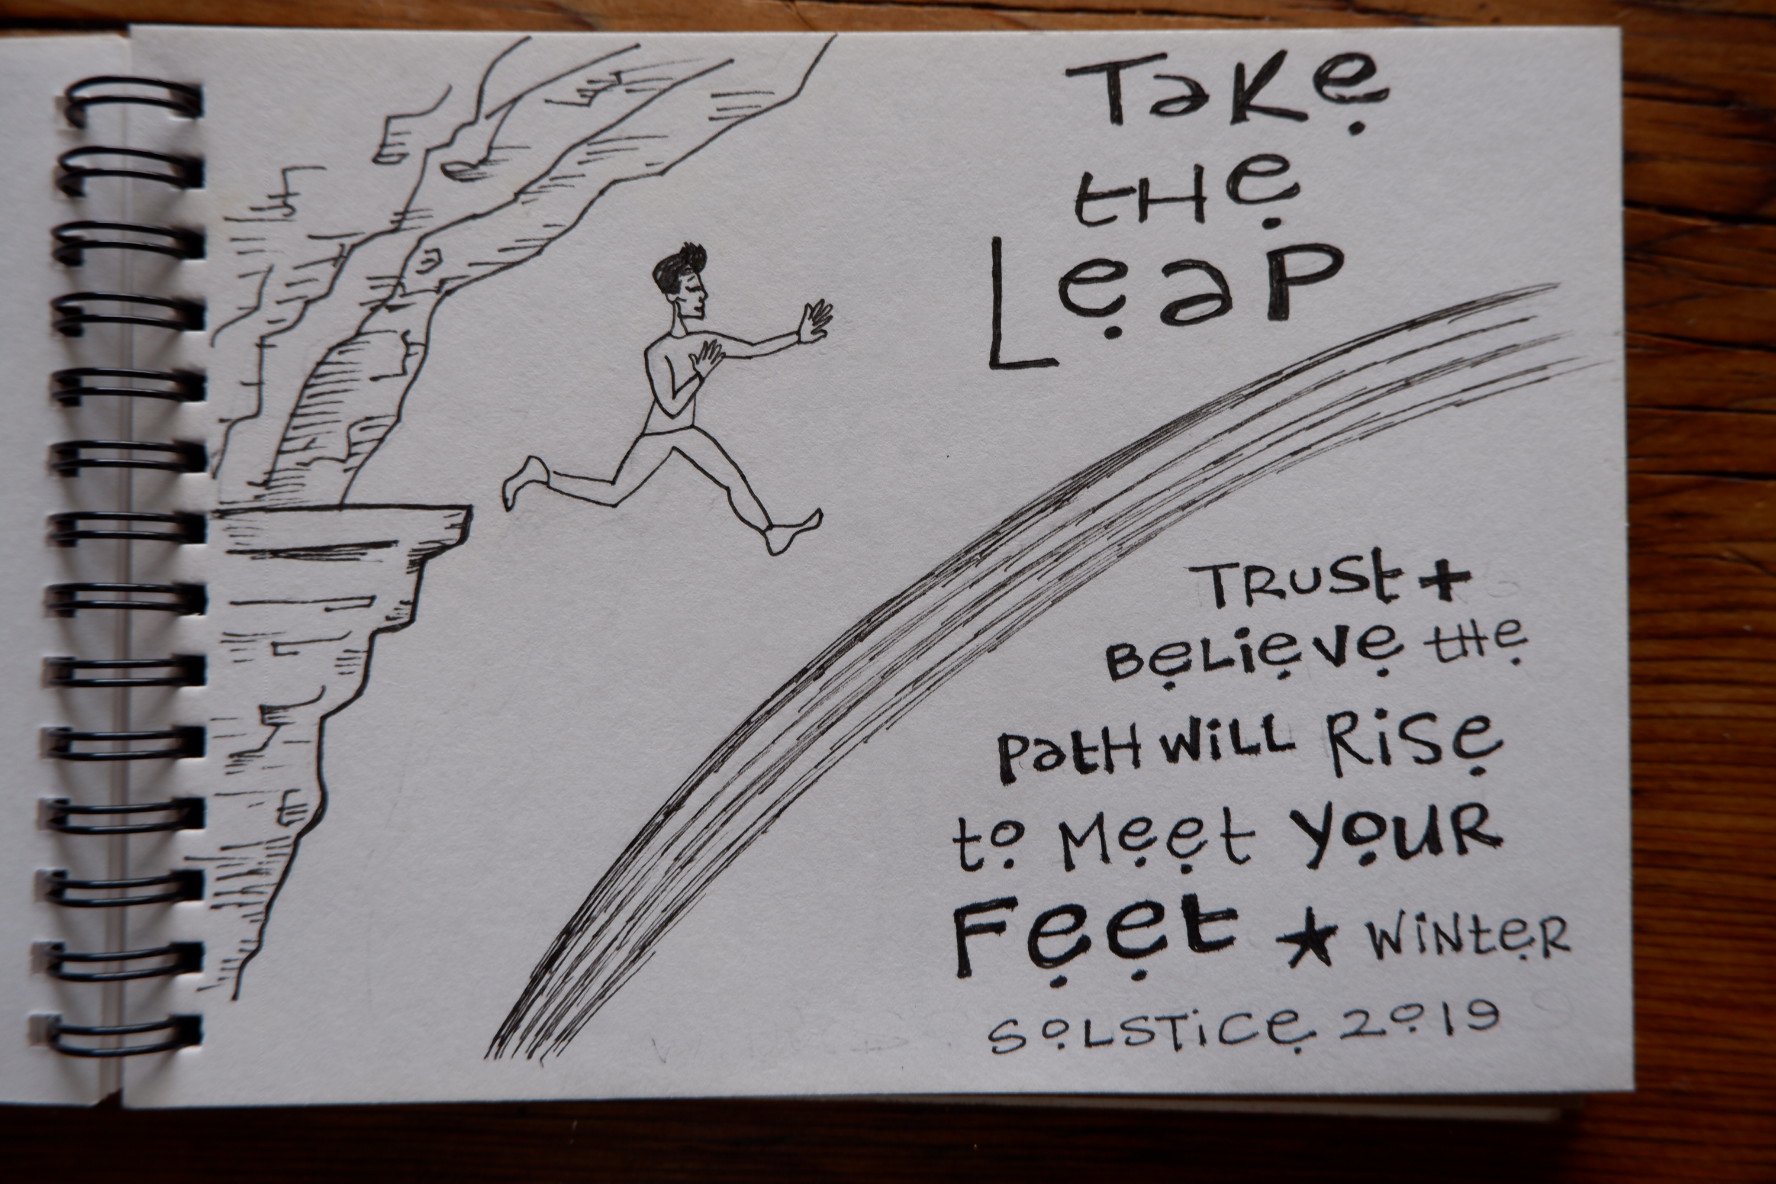 Take
the
Leap
Trust +
Believe the
Path will Rise
to Meet Your
Feet ★ Winter
Solstice 2019